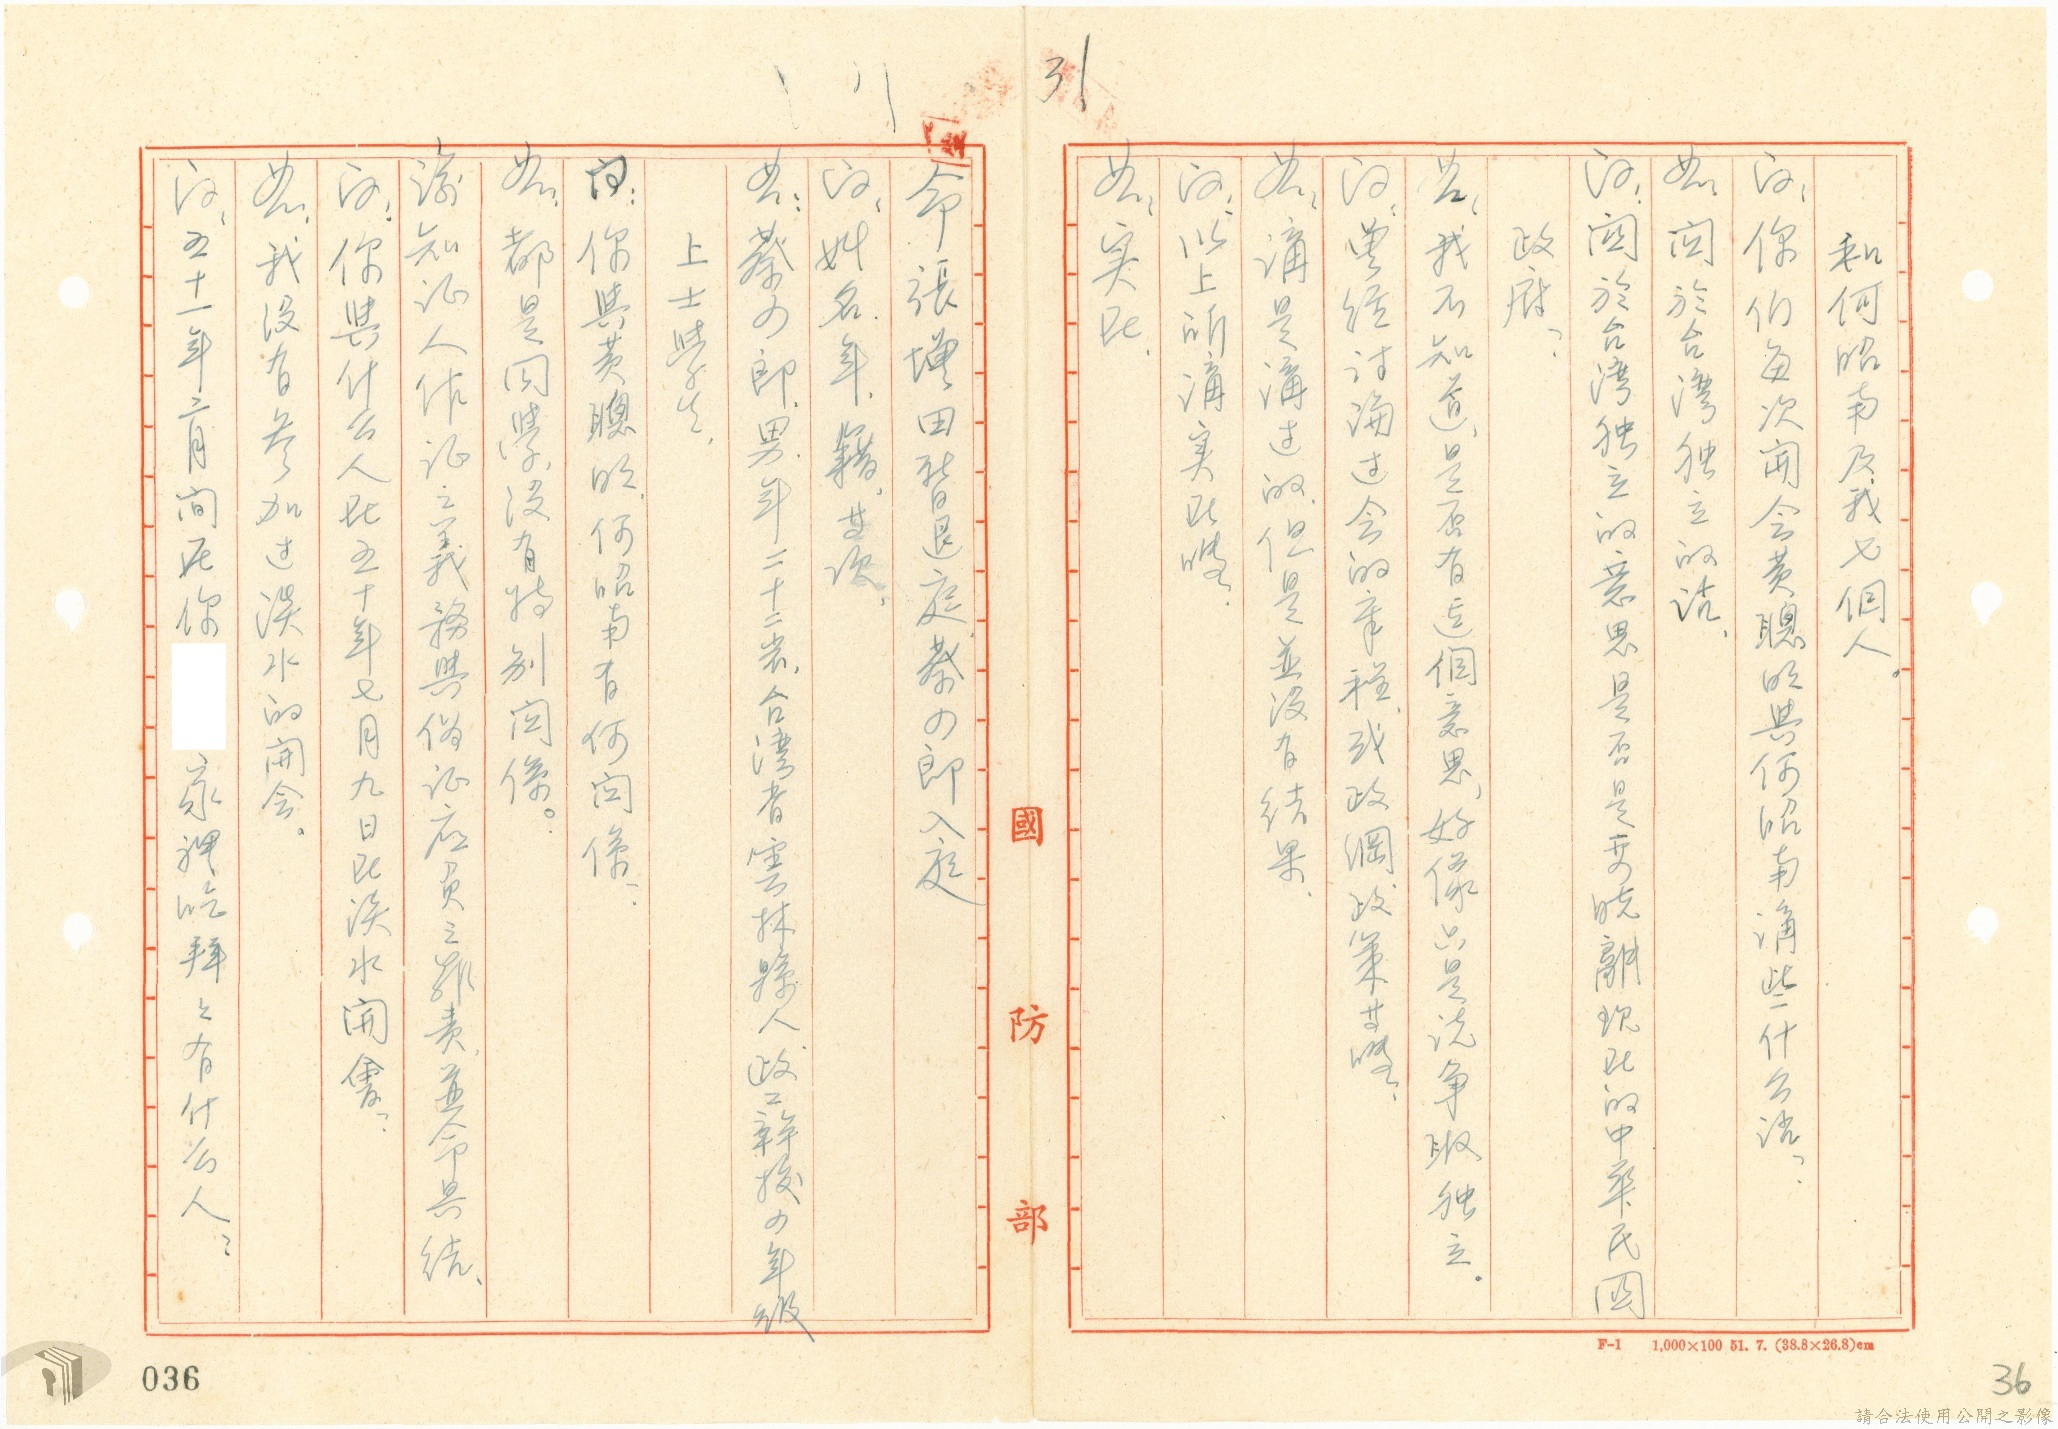 31
和何昭南及我七個人。
问:你们每次開会黃聰明與何昭南講些什么话?
答:関於台湾独立的话、
问:関於台湾独立的意思是否是要脱離現在的中華民國
政府?
答:我不知道,是否有这個意思,好像只是説争取独立。
问:曾経討論过会的章程或政綱政策等嗎?
答:講是講过的,但是並没有结果、
问:以上所講实在嗎?
答:实在、
命張増田暫退庭蔡四郎入庭
问:姓名、年、籍、等项、
答:蔡四郎、男、年二十二岁、台湾省雲林縣人政工幹校四年級
上士學生、
问:你與黃聰明、何昭南有何関係?
答:都是同學,没有特别関係。
諭知证人作证之義務與偽证应負之罪責,並命具结、
问:你與什么人在五十年七月九日在淡水開會?
答:我没有参加过淡水的開会。
问:五十一年二月间在你 家裡吃拜々有什么人?
國防部
F-1 1,000×100 51. 7. (38.8×26.8)cm
036
36
請合法使用公開之影像